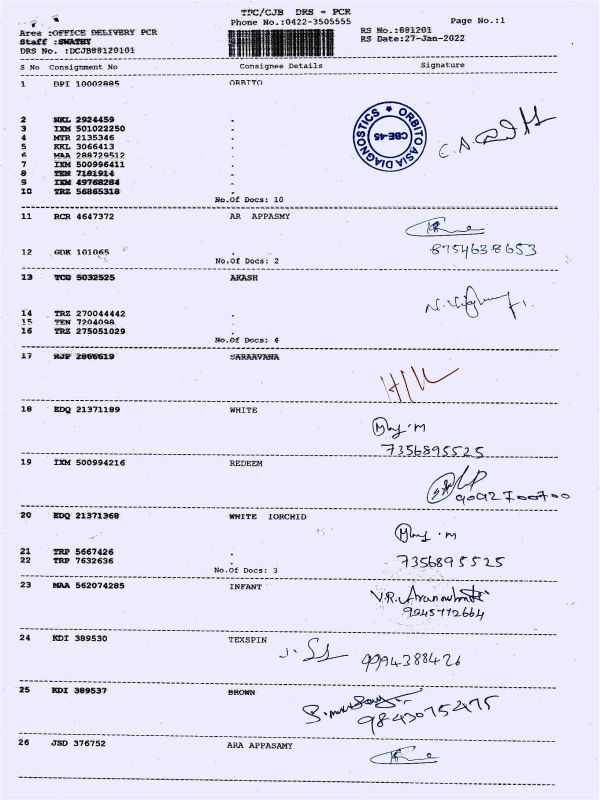 TPC/CJB DRS - PCR
Phone No.:0422-3505555 Page No.:1
Area :OFFICE DELIVERY PCR RS No.:881201
Staff :SWATHY RS Date:27-Jan-2022
DRS No. :DCJB88120101
S No Consignment No Consignee Details Signature
1 DPI 10002885 ORBITO
ORBITO ASIA DIAGNOSTICS
CBE-45
2 NKL 2924459 .
3 IXM 501022250 .
4 MTR 2135346 .
5 KKL 3066413 .
6 MAA 288729512 .
7 IXM 500996411 .
8 TEN 7181914 .
9 IXM 49768284 .
10 TRZ 56865318 .
No.Of Docs: 10
11 RCR 4647372 AR APPASMY
8754638653
12 GDK 101065 .
No.Of Docs: 2
13 TCG 5032525 AKASH
14 TRZ 270044442 .
15 TEN 7204098 .
16 TRZ 275051029 .
No.Of Docs: 4
17 RJF 2866619 SARAAVANA
18 EDQ 21371189 WHITE
7356895525
19 IXM 500994216 REDEEM
9092700700
20 EDQ 21371368 WHITE IORCHID
21 TRP 5667426 .
22 TRP 7632636 .
7356895525
No.Of Docs: 3
23 MAA 562074285 INFANT
9245772664
24 KDI 389530 TEXSPIN
9994388426
25 KDI 389537 BROWN
9843075475
26 JSD 376752 ARA APPASAMY